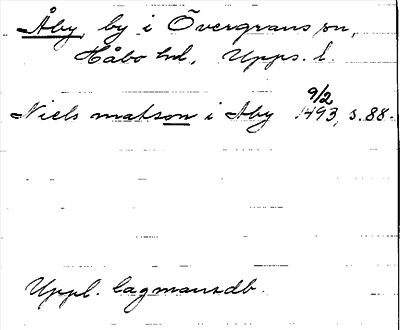 Åby, by i Övergrans sn,
Håbo hd, Upps. l.
9/2
Niels matson i Aby 1493, s. 88.
Uppl. lagmansdb.